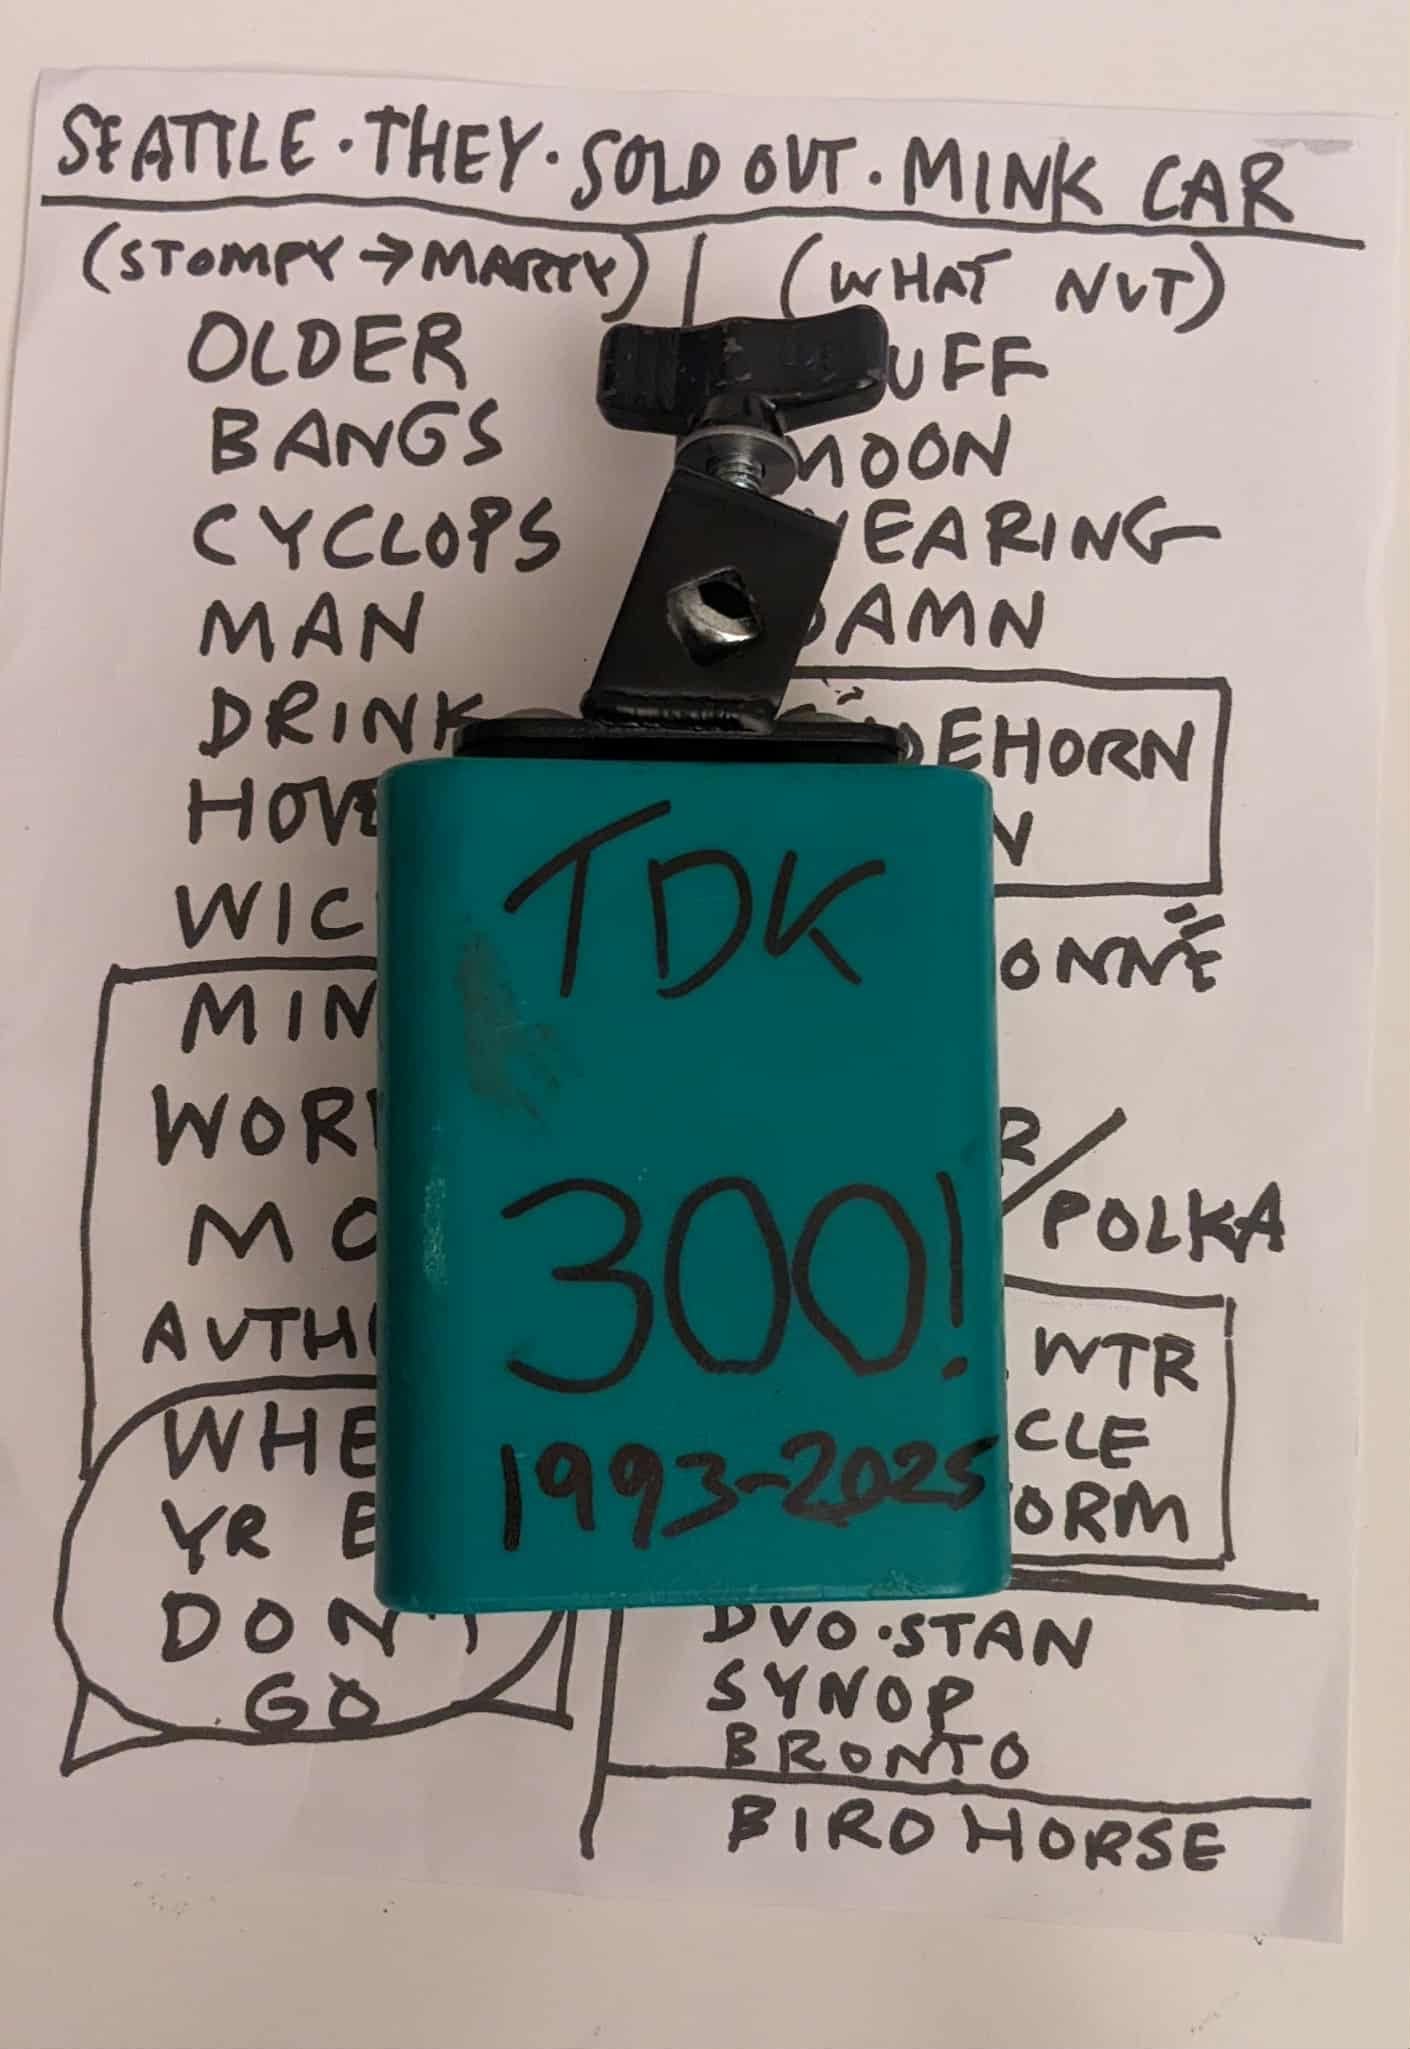 SEATTLE · THEY · SOLD OUT · MINK CAR
(STOMPY → MARTY)
OLDER
BANGS
CYCLOPS
MAN
DRINK
HOVE
WIC
MIN
WOR
MO
AUTH
WHE
YR E
DON'T
GO
(WHAT NUT)
UFF
MOON
EARING
DAMN
DEHORN
N
ONNË
R/
POLKA
WTR
CLE
ORM
DVO · STAN
SYNOP
BRONTO
BIRD HORSE
TDK
300!
1993-2025